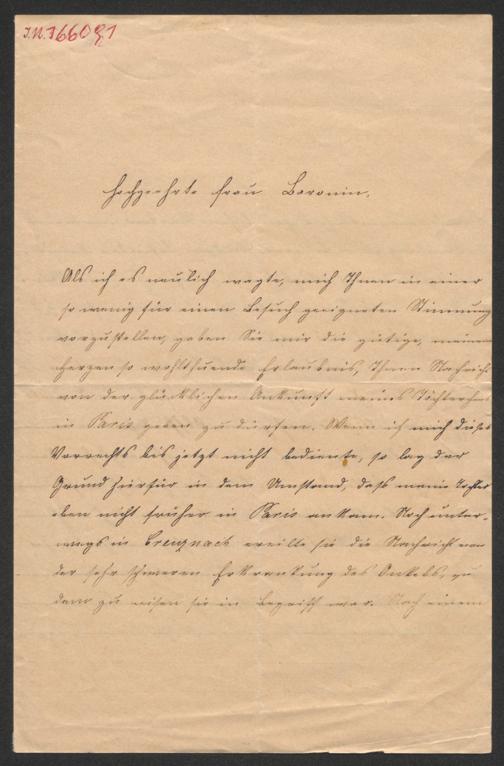 I.N. 166091
Hochgeehrte Frau Baronin.
Als ich es neulich wagte, mich Ihnen in einer
so wenig für einen Besuch geeigneten Stimmung
vorzustellen, gaben Sie mir die gütige, meinem
Herzen so wohlthuende Erlaubnis, Ihnen Nachricht
von der glücklichen Ankunft meines Töchterchens
in Paris geben zu dürfen. Wenn ich mich dieses
Vorrechts bis jetzt nicht bediente, so lag der
Grund hierfür in dem Umstand, dass meine Tochter
eben nicht früher in Paris ankam. Noch unter-
wegs in Creuznach ereilte sie die Nachricht von
der sehr schweren Erkrankung des Onkels, zu
dem zu reisen sie in Begriff war. Nach einem